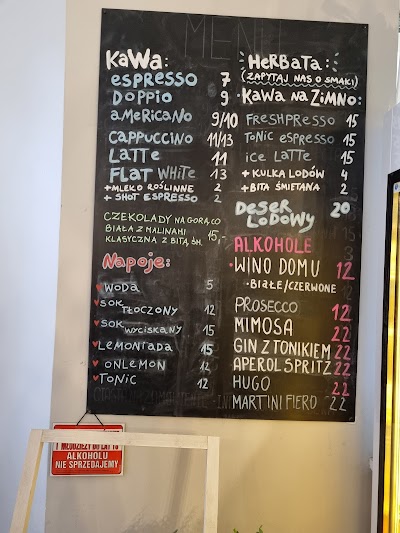 MENU
KaWa:
espresso 7
Doppio 9
americano 9/10
cappuccino 11/13
Latte 11
FLat WHITe 13
+MLeKO ROŚLINNe 2
+ SHOT ESPReSSO 2
CZEKOLADY NA GORĄCO
BIAŁA Z MALINAMI 15,-
KLASYCZNA Z BITĄ ŚM.
Napoje:
WODA 5
SOK TŁOCZONY 12
SOK WYCISKANY 15
LeMONIADA 15
ONLeMON 12
TONIC 12
HeRBaTa:
(ZAPYTAJ NAS O SMAKI)
KaWa Na ZiMNO:
FReSHPResso 15
TONIC eSPResso 15
ICe LaTTe 15
+ KULKA LODÓW 4
+BITA ŚMIETANA 2
DeseR LODOWY 20
ALKOHOLE
WINO DOMU 12
•BIAŁE/CZERWONE
PROSECCO 12
MIMOSA 22
GIN Z TONIKIEM 22
APEROL SPRITZ 22
HUGO 22
MARTINI FIERO 22
I MŁODZIEŻY DO LAT 18
ALKOHOLU
NIE SPRZEDAJEMY